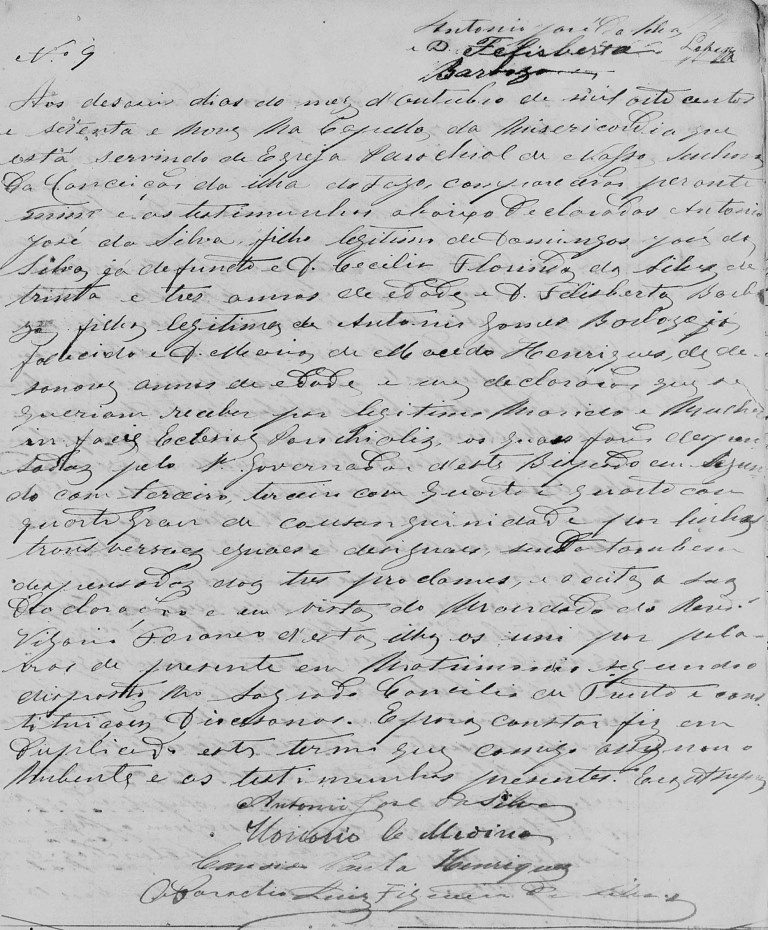 Nº 9
Antonio José da Silva
e D. Felisberta
Barboza
Aos deseseis dias do mez d'Outubro de mil oito centos
e setenta e nove na Capella da Misericordia que
está servindo de Egreja Parochial de Nossa Senhora
da Conceição da ilha do Fogo, comparecêrão perante
mim e as testimunhas abaixo declaradas Antonio
José da Silva, filho legitimo de Domingos José da
Silva, já defuncto e D. Cecilia Florinda da Silva, de
trinta e tres annos de edade e D. Felisberta Barbo-
za, filha legitima de Antonio Gomes Barboza já
fallecido e D. Maria de Macedo Henriques, de de-
sonove annos de edade e me declararão que se
queriam receber por legitimos Marido e Mulher
in facie Eclesiae Parochialis, os quaes forão despen-
sados pelo Governador deste Bispado em segun-
do com terceiro, terceiro com quarto e quarto com
quarto grau de consanguinidade por linhas
transversaes eguaes e desiguaes, sendo tambem
despensados dos tres proclames, e aceita a sua
declaração e em vista do Mandado do Revd.º
Vigario Foraneo d'esta ilha os uni por pala-
vras de presente em Matrimonio segundo o
disposto no Sagrado Concilio de Trento e cons-
tituições Diocesanas. E para constar fiz em
duplicado este termo que comigo assignou o
Nubente e as testimunhas presentes. Era ut supra
Antonio José da Silva
Honorio de Medina
Paula Henriques
O Parocho Luiz da Silva